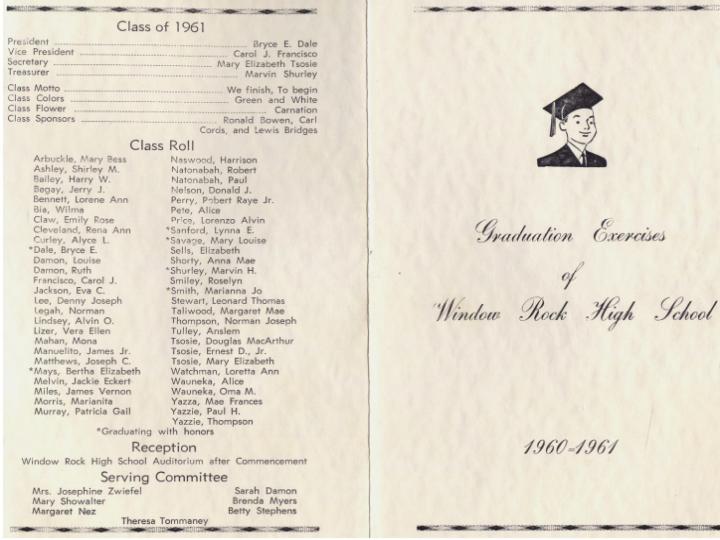 Class of 1961
President Bryce E. Dale
Vice President Carol J. Francisco
Secretary Mary Elizabeth Tsosie
Treasurer Marvin Shurley
Class Motto We finish, To begin
Class Colors Green and White
Class Flower Carnation
Class Sponsors Ronald Bowen, Carl
Cords, and Lewis Bridges
Class Roll
Arbuckle, Mary Bess
Ashley, Shirley M.
Bailey, Harry W.
Begay, Jerry J.
Bennett, Lorene Ann
Bia, Wilma
Claw, Emily Rose
Cleveland, Rena Ann
Curley, Alyce L.
*Dale, Bryce E.
Damon, Louise
Damon, Ruth
Francisco, Carol J.
Jackson, Eva C.
Lee, Denny Joseph
Legah, Norman
Lindsey, Alvin O.
Lizer, Vera Ellen
Mahan, Mona
Manuelito, James Jr.
Matthews, Joseph C.
*Mays, Bertha Elizabeth
Melvin, Jackie Eckert
Miles, James Vernon
Morris, Marianita
Murray, Patricia Gail
Naswood, Harrison
Natonabah, Robert
Natonabah, Paul
Nelson, Donald J.
Perry, Robert Raye Jr.
Pete, Alice
Price, Lorenzo Alvin
*Sanford, Lynna E.
*Savage, Mary Louise
Sells, Elizabeth
Shorty, Anna Mae
*Shurley, Marvin H.
Smiley, Roselyn
*Smith, Marianna Jo
Stewart, Leonard Thomas
Taliwood, Margaret Mae
Thompson, Norman Joseph
Tulley, Anslem
Tsosie, Douglas MacArthur
Tsosie, Ernest D., Jr.
Tsosie, Mary Elizabeth
Watchman, Loretta Ann
Wauneka, Alice
Wauneka, Oma M.
Yazza, Mae Frances
Yazzie, Paul H.
Yazzie, Thompson
*Graduating with honors
Reception
Window Rock High School Auditorium after Commencement
Serving Committee
Mrs. Josephine Zwiefel
Mary Showalter
Margaret Nez
Sarah Damon
Brenda Myers
Betty Stephens
Theresa Tommaney
Graduation Exercises
of
Window Rock High School
1960-1961